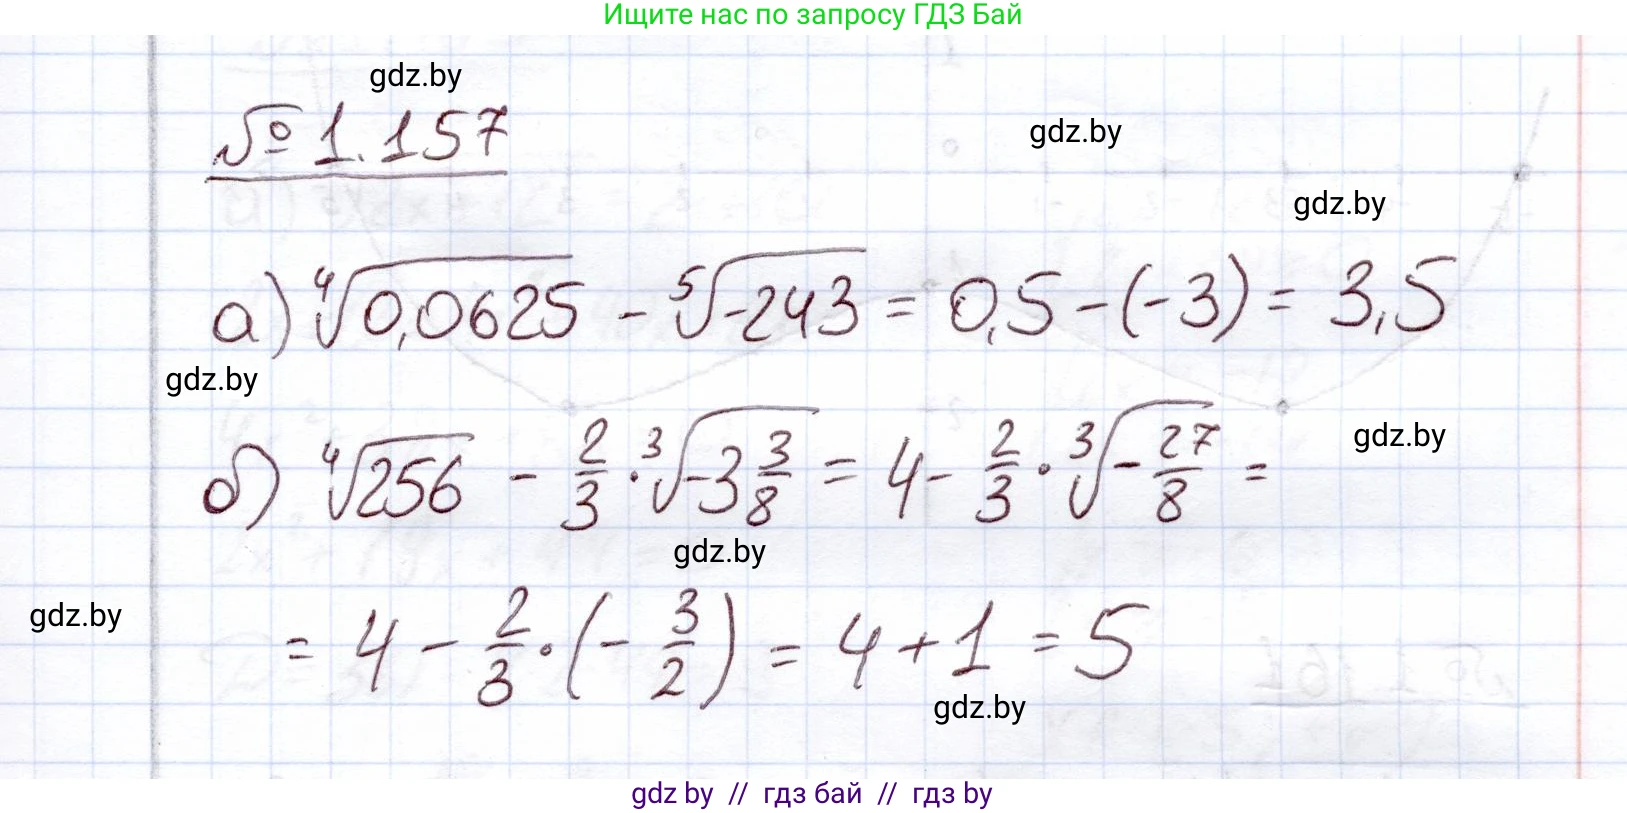 Ищите нас по запросу ГДЗ Бай
gdz.by
№ 1.157
gdz.by
gdz.by
а) ⁴√0,0625 - ⁵√-243 = 0,5 - (-3) = 3,5
gdz.by
gdz.by
б) ⁴√256 - 2/3 · ³√-3 3/8 = 4 - 2/3 · ³√-27/8 =
gdz.by
gdz.by
= 4 - 2/3 · (-3/2) = 4 + 1 = 5
gdz.by
gdz by // гдз бай // гдз by